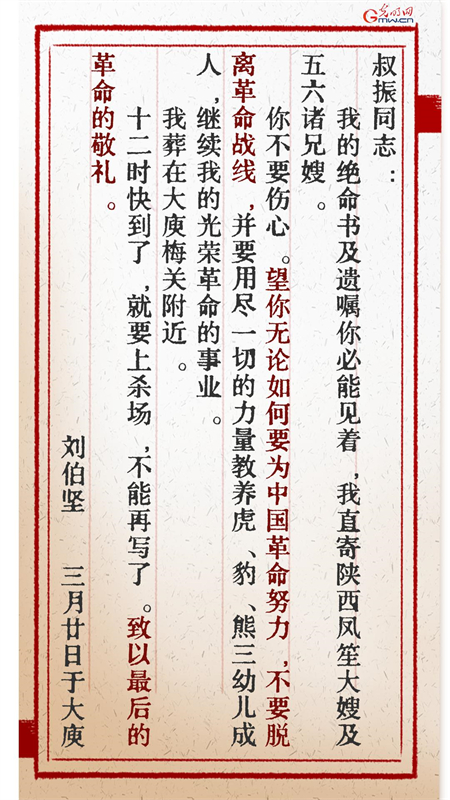 光明网
GMW.CN
叔振同志：
我的绝命书及遗嘱你必能见着，我直寄陕西凤笙大嫂及
五六诸兄嫂。
你不要伤心。望你无论如何要为中国革命努力，不要脱
离革命战线，并要用尽一切的力量教养虎、豹、熊三幼儿成
人，继续我的光荣革命的事业。
我葬在大庾梅关附近。
十二时快到了，就要上杀场，不能再写了。致以最后的
革命的敬礼。
刘伯坚 三月廿日于大庾